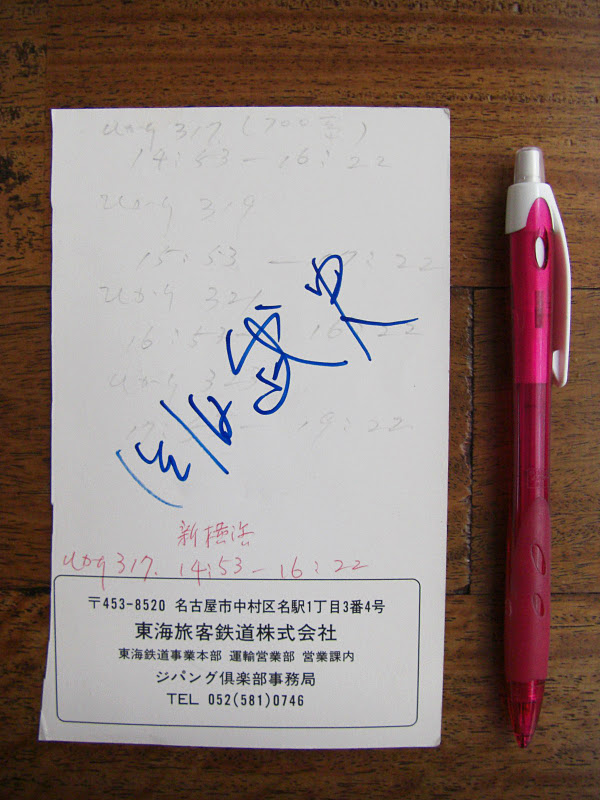 ひかり 317 (700系)
14:53 — 16:22
ひかり 319
15:53 — 17:22
ひかり 321
16:53 22
ひかり
19:22
新横浜
ひかり 317. 14:53 — 16:22
〒453-8520 名古屋市中村区名駅1丁目3番4号
東海旅客鉄道株式会社
東海鉄道事業本部 運輸営業部 営業課内
ジパング倶楽部事務局
TEL 052(581)0746